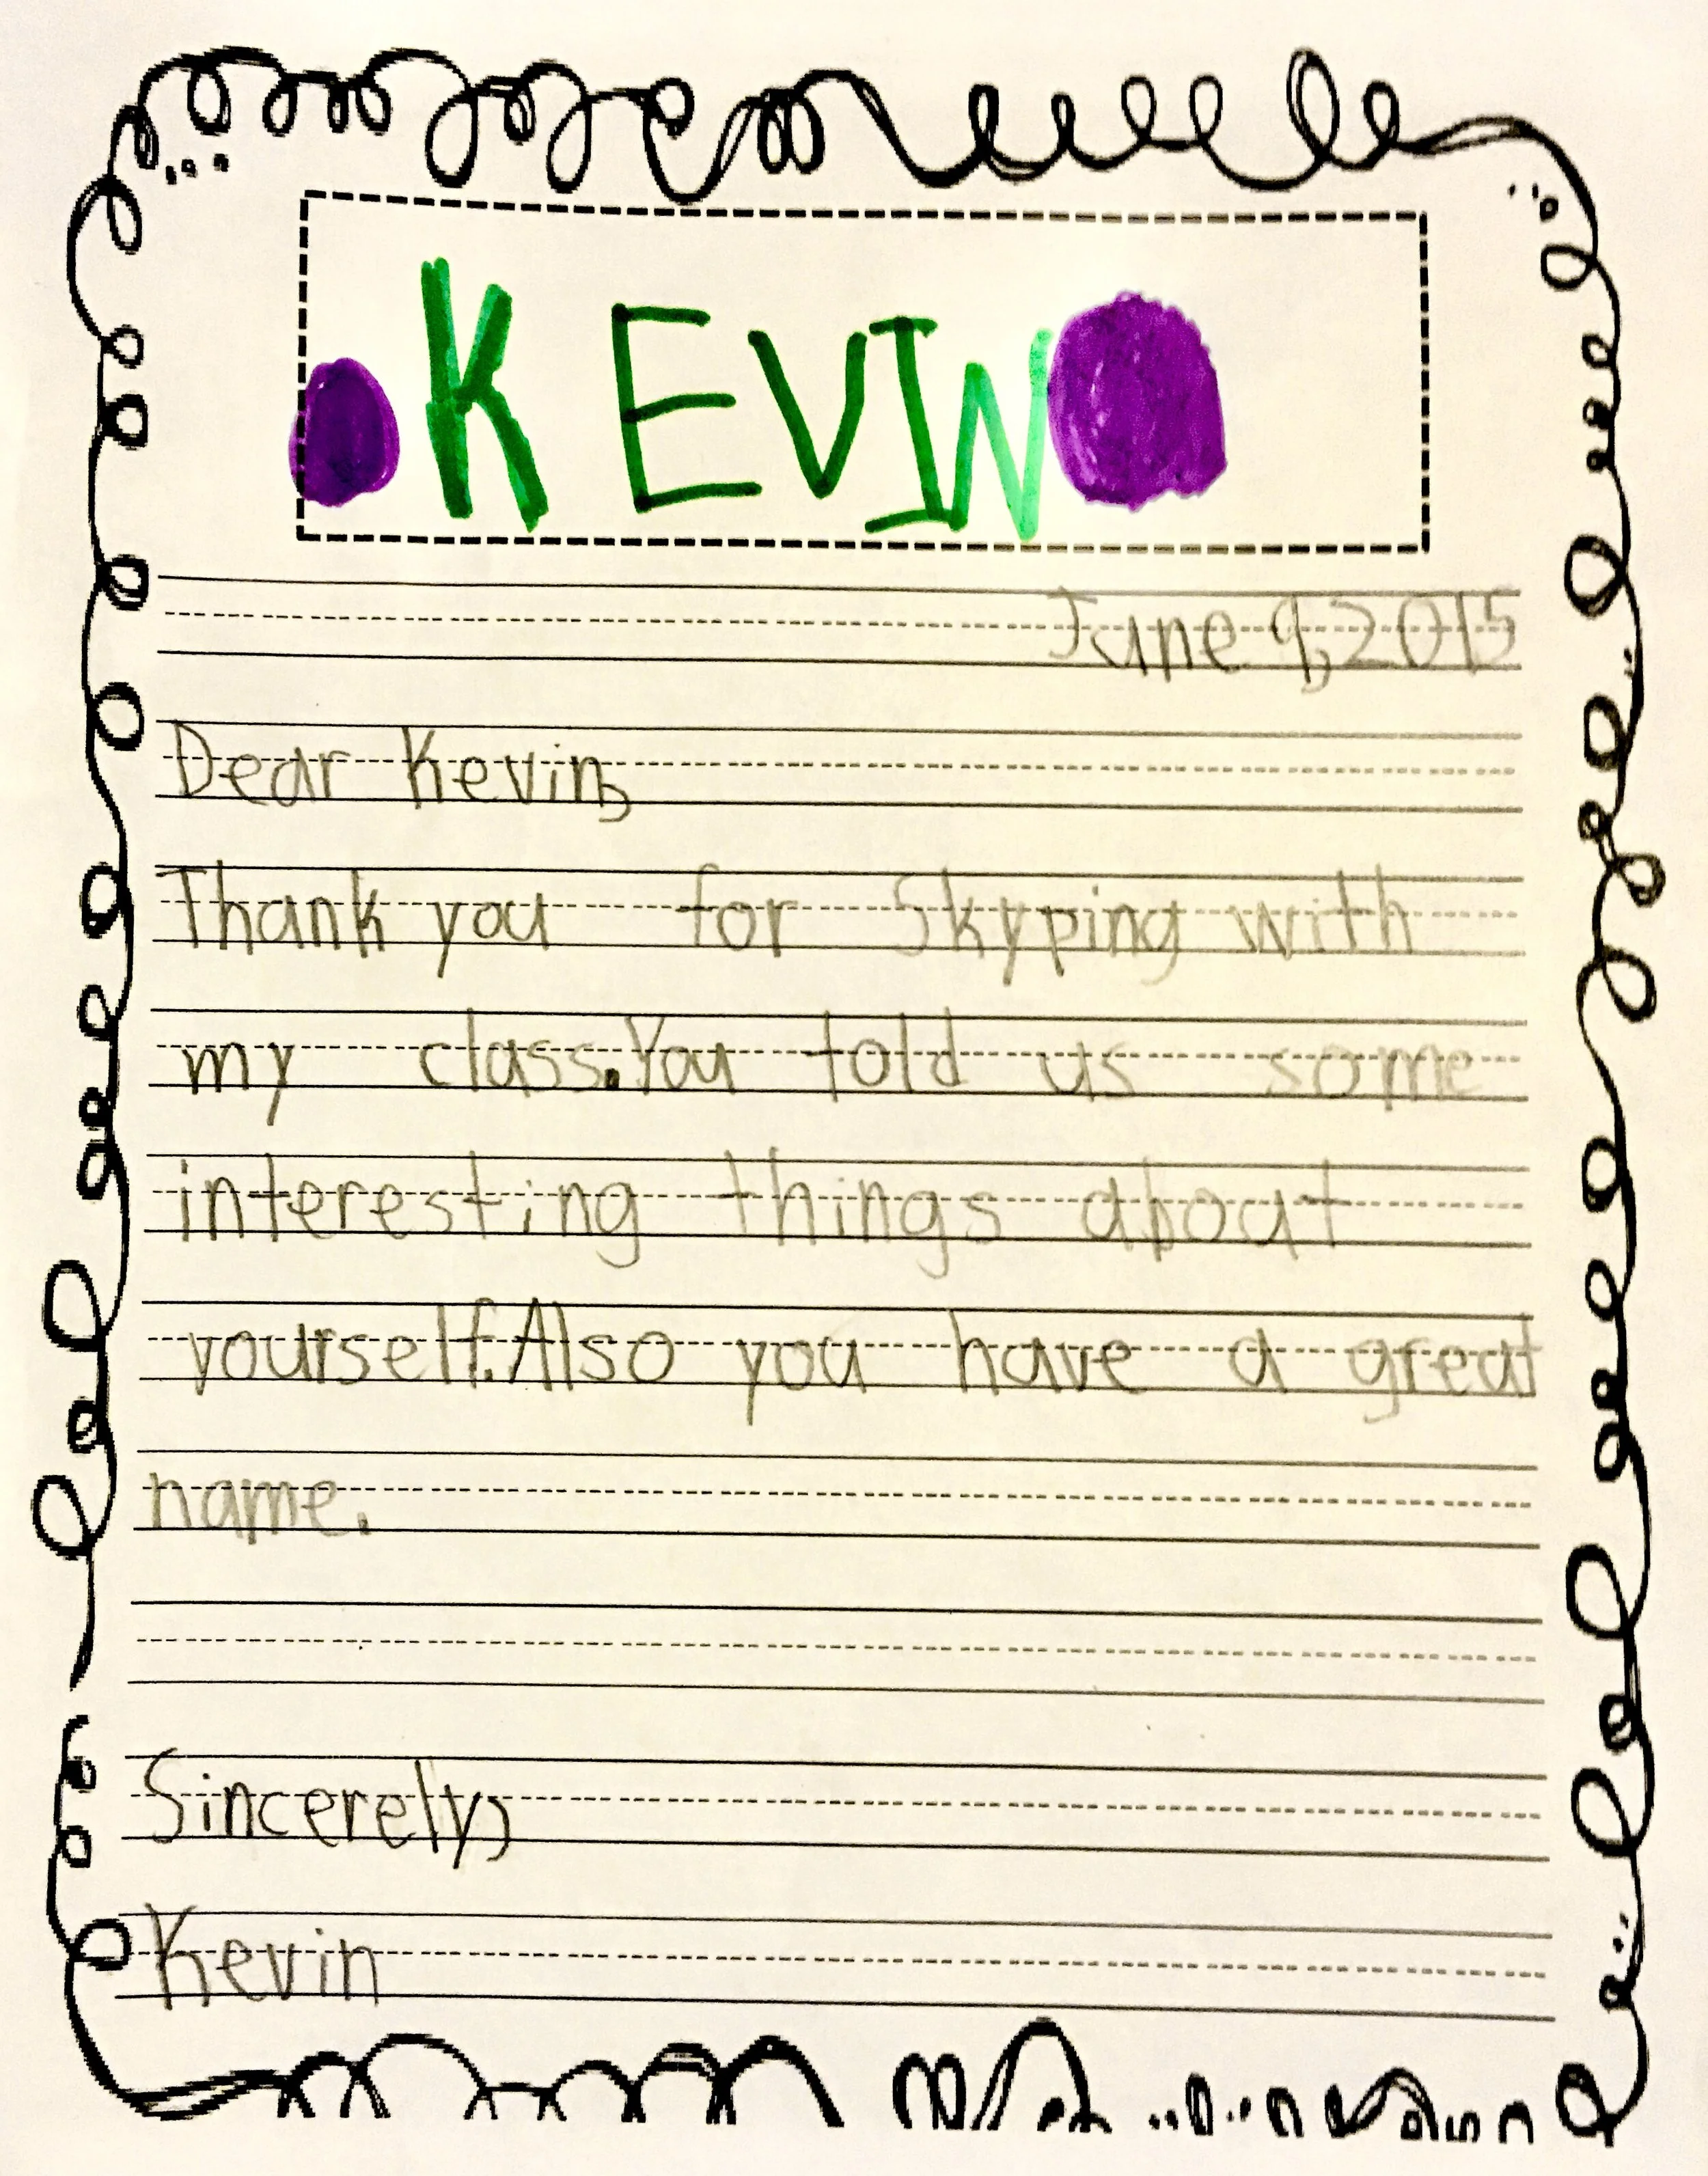 KEVIN
June 9, 2015
Dear Kevin,
Thank you for Skyping with
my class. You told us some
interesting things about
yourself. Also you have a great
name.
Sincerely,
Kevin